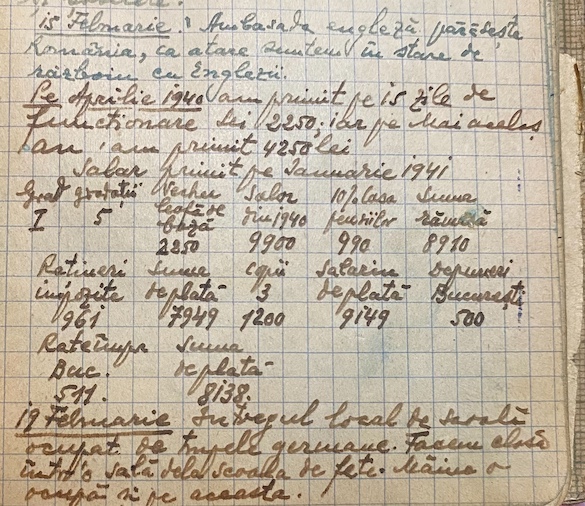 15 Februarie. Ambasada engleză părăsește
România, ca atare suntem în stare de
războiu cu Englezii.
Pe Aprilie 1940 am primit pe 15 zile de
functionare Lei 2250, iar pe Mai acelaș
an am primit 4250 lei
Salar primit pe Ianuarie 1941
Grad gradații Vechea Salar 10% Casa Suma
I 5 leafă de din 1940 pensiilor rămasă
bază
2250 9900 990 8910
Rețineri Suma copii Salariu Depuneri
impozite de plată 3 de plată București
961 7949 1200 9149 500
Rate împr Suma
Buc. de plată
511. 8138.
19 Februarie Întregul local de școală
ocupat de trupele germane. Facem clasă
într'o sală dela școala de fete. Mâine o
ocupă și pe aceasta.